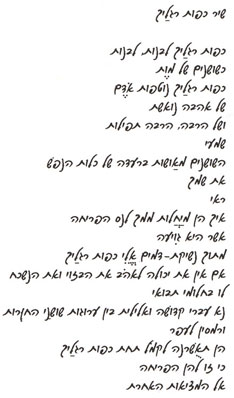 שיר כפות רגליך
כפות רגליך לבנות, לבנות
כשושנים של מָוֶת
כפות רגליך נוטפות אֹדֶם
של אהבה נואשת
ושל הרבה, הרבה תפילות
שמעי
השושנים מְאַוְשׁוֹת ברעדה של כלות הנפש
את שמך
ראי
איך הן מְחַלּוֹת ממך לנס הפריחה
אשר היא גְּוִיעָה
מתוך נשיקת-דמים אֱלֵי כפות רגליך
אם אין את יכולה לאהֹב את הבזוי ואת הנשכח
לו בחלומי תבואי
נא עברי קדושה ואלילית בין ערוגות שושני החֵרוּת
ורמסין לעפר
הן תְּאַשֵּׁרְנָה לִקְמֹל תחת כפות רגליך
כי זו לָהֶן הפריחה
אל המציאות האחרת